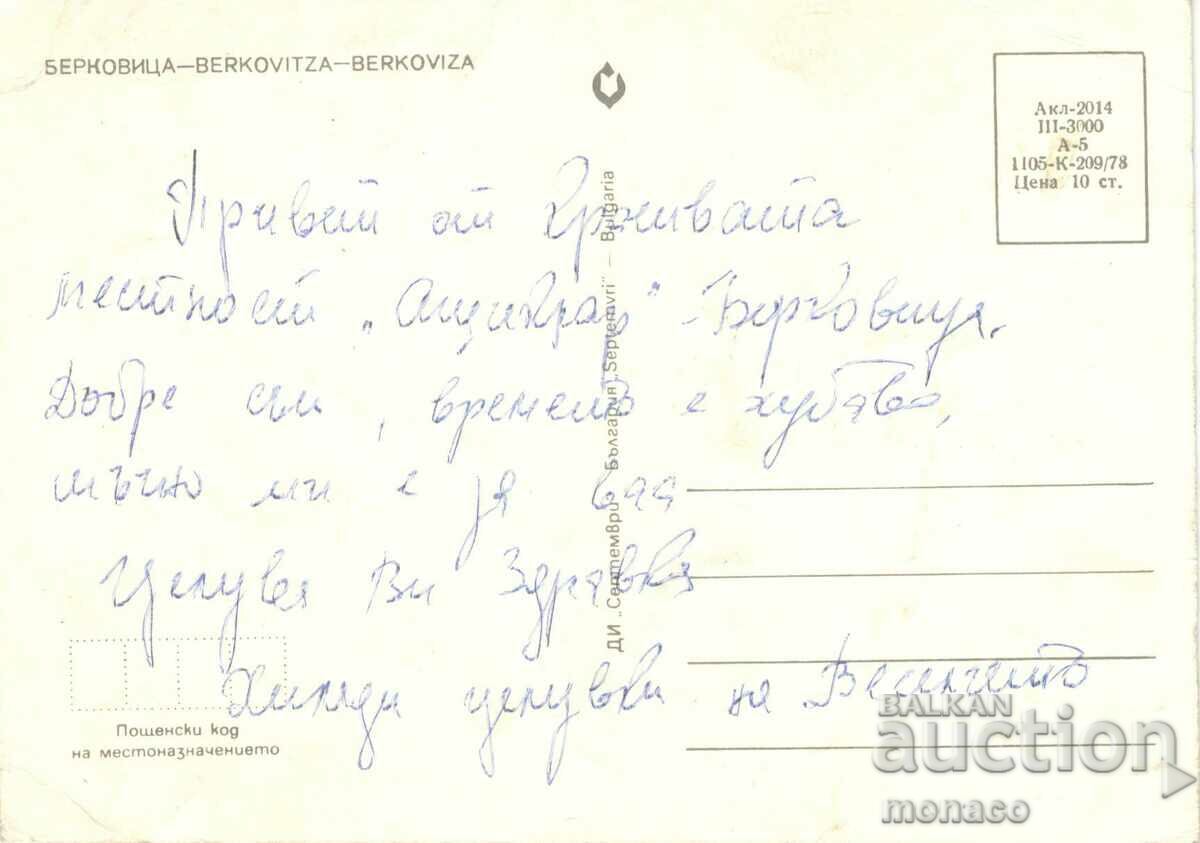 БЕРКОВИЦА—BERKOVITZA—BERKOVIZA
Акл-2014
III-3000
А-5
1105-К-209/78
Цена 10 ст.
Привет от
местност „ " Берковица.
Добре съм, времето е хубаво,
мъчно ми е за вас
Целува Ви Здравка
Хиляди целувки на Веселчето
ДИ „Септември България „Septemvri" — Bulgaria
Пощенски код
на местоназначението
BALKAN
auction
monaco